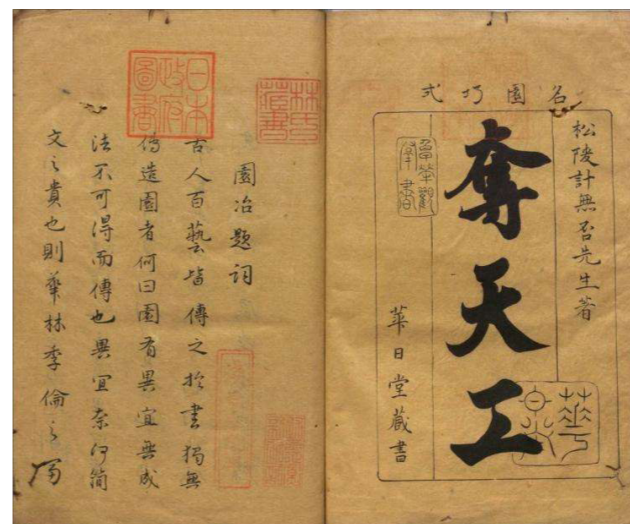 名園巧式
松陵計無否先生著
奪天工
華日堂藏書
園冶題詞
古人百藝皆傳之於書獨無
傳造園者何曰園有異宜無成
法不可得而傳也異宜奈何簡
文之貴也則華林季倫之富
日本政府圖書
林氏藏書